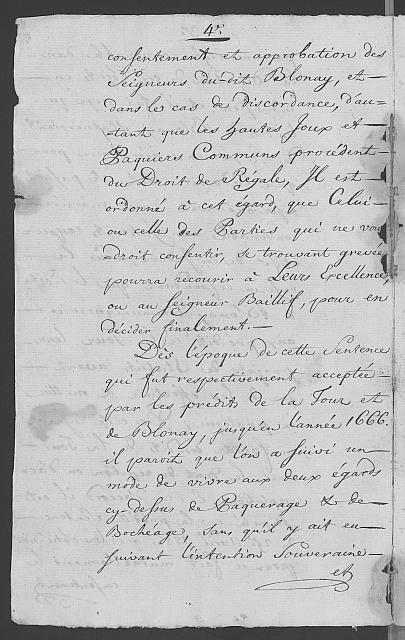 4e.
consentement et approbation des
Seigneurs du dit Blonay, et
dans le cas de discordance, d'au-
=tant que les hautes Joux et
Paquiers Communs procédent
du Droit de Régale, Il est
ordonné à cet égard, que Celui
ou celle des Parties qui ne vou
=droit consentir, se trouvant grevée
pourra recourir à Leurs Excellence
ou au Seigneur Baillif, pour en
décider finalement.
Dès l'époque de cette Sentence
qui fut respectivement acceptée
par les prédits de la Tour et
de Blonay, jusqu'en l'année 1666.
il paroit que l'on a suivi un
mode de vivre aux deux égards
cy-dessus de Paquerage & de
Bochéage, sans qu'il y ait eu
suivant l'intention Souveraine
et